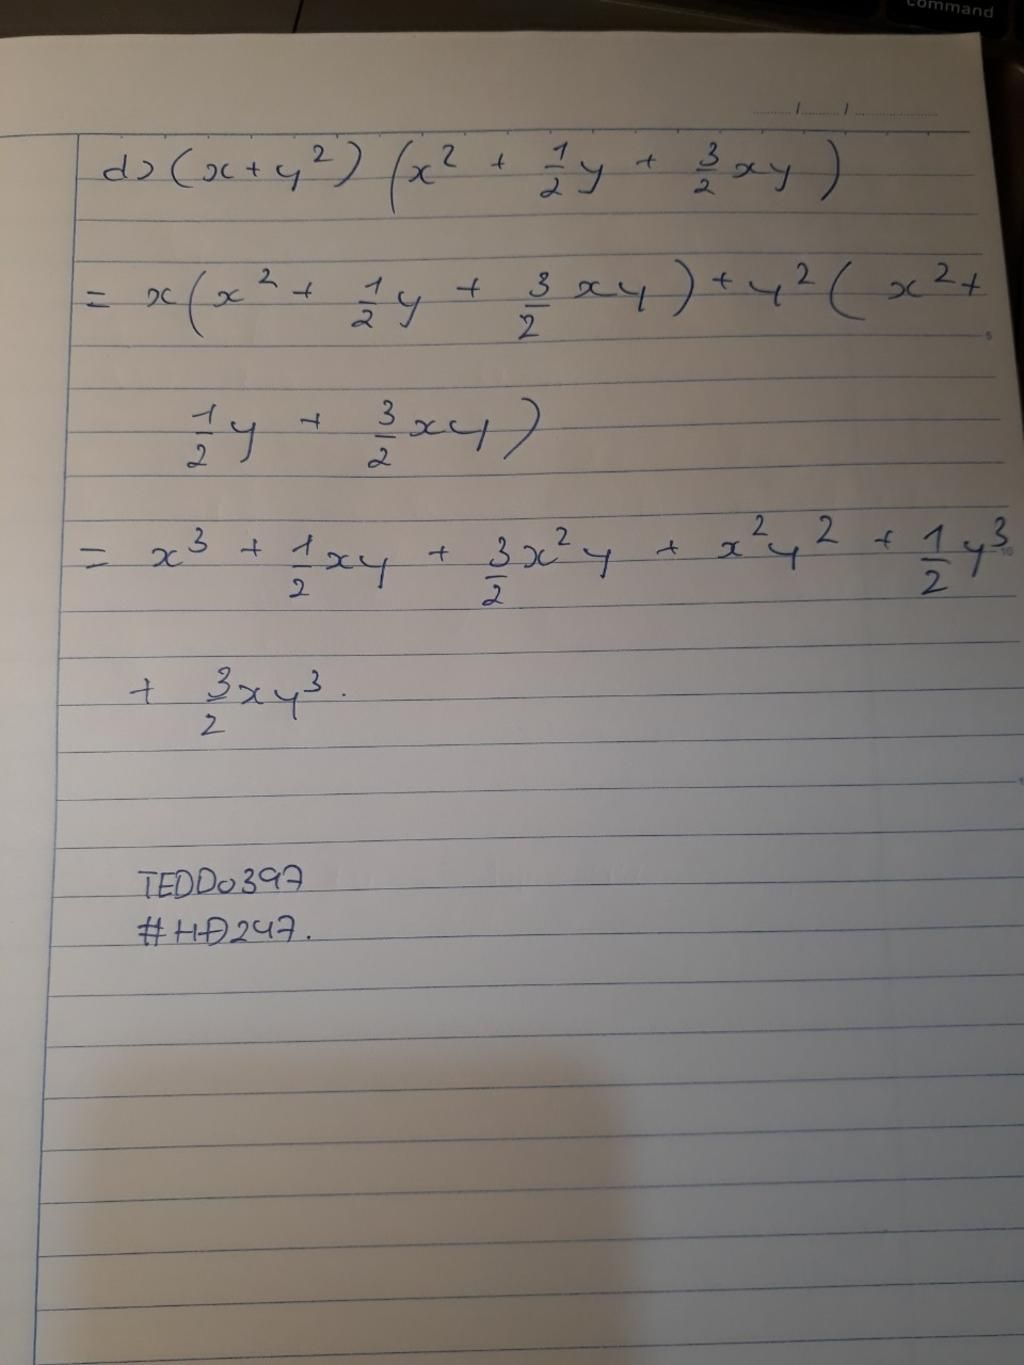 command
d) (x + y²) (x² + 1/2 y + 3/2 xy)
= x(x² + 1/2 y + 3/2 xy) + y² ( x² +
1/2 y + 3/2 xy)
= x³ + 1/2 xy + 3/2 x²y + x²y² + 1/2 y³
+ 3/2 xy³.
TEDD0397
#HĐ247.